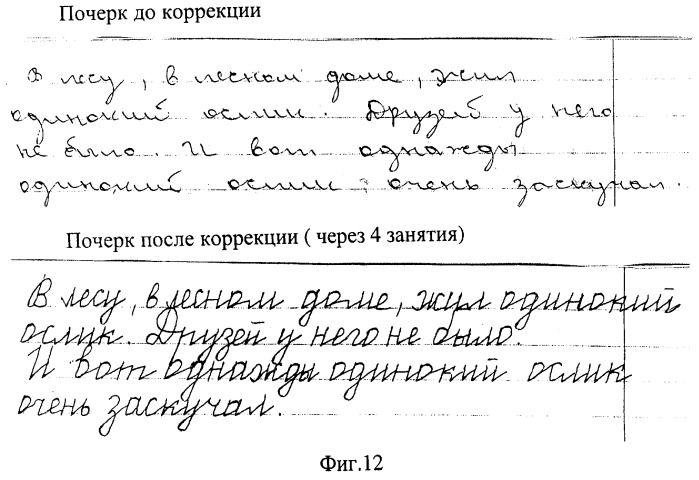 Почерк до коррекции
В лесу, в лесном доме, жил
одинокий ослик. Друзей у него
не было. И вот однажды
одинокий ослик очень заскучал.
Почерк после коррекции ( через 4 занятия)
В лесу, в лесном доме, жил одинокий
ослик. Друзей у него не было.
И вот однажды одинокий ослик
очень заскучал.
Фиг.12